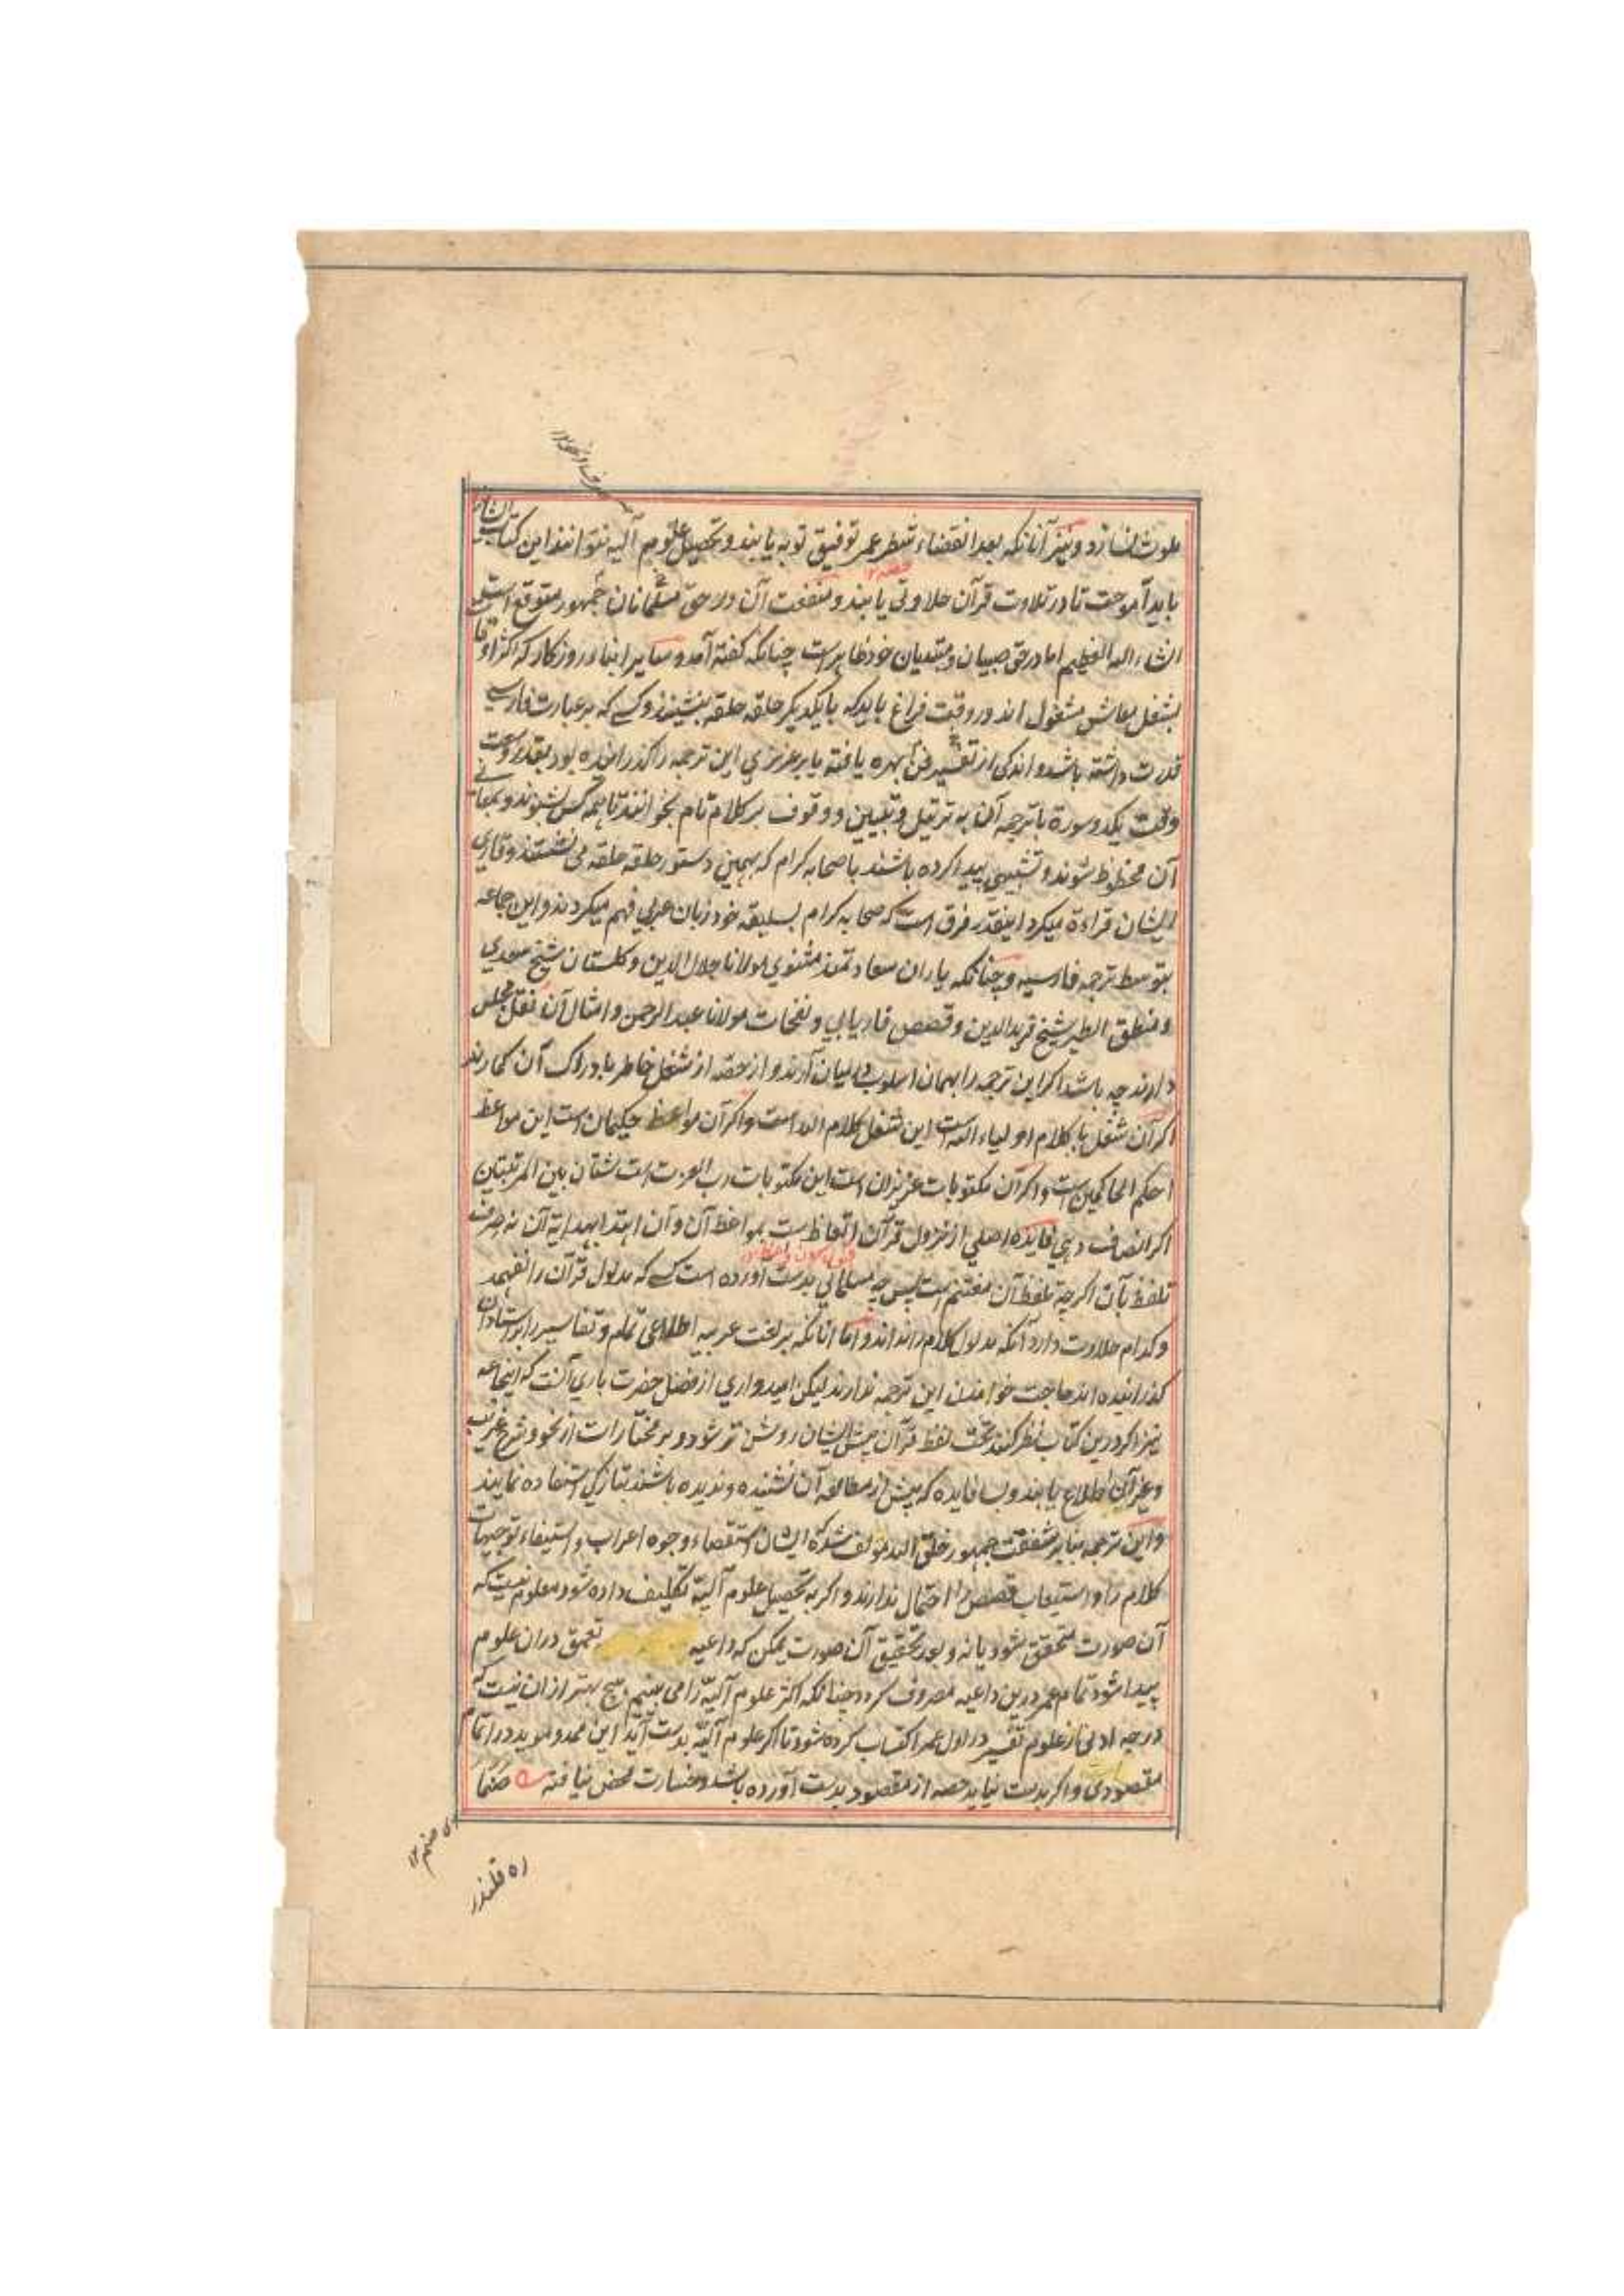 ملوث نسازد و نیز آنانکه بعد انقضاء شطر عمر توفیق توبه یابند و تحصیل علوم آلیه نتوانند این کتاب ایشان را
باید آموخت تا در تلاوت قرآن حلاوتی یابند و منفعت آن در حق مسلمانان جمهور متوقع است
انشاء الله العظیم اما در حق صبیان و مبتدیان خود ظاهر است چنانکه گفته آمد و سایر ابناء روزکار که اکثر اوقات
بشغل معاش مشغول اند در وقت فراغ باید که با یکدیکر حلقه حلقه بنشینند و کسی که بر عبارت فارسی
قدرت داشته باشد و اندکی از فن تفسیر بهره یافته یا بر عزیزی این ترجمه را گذرانیده بود بقدر وسعت
وقت یکدو سورة با ترجمه آن به ترتیل و تبیین و وقوف بر کلام تام بخوانند تا همه کس بشنوند و بمعانی
آن محظوظ شوند و تشبیهی پیدا کرده باشند با صحابه کرام که بهمین دستور حلقه حلقه می نشستند و قاری
ایشان قراءة میکرد اینقدر فرق است که صحابه کرام بسلیقه خود زبان عربی فهم میکردند و این جماعه
بتوسط ترجمه فارسیه و چنانکه یاران سعادتمند مثنوی مولانا جلال الدین و کلستان شیخ سعدی
و منطق الطیر شیخ فرید الدین و قصص فاریابی و نفحات مولانا عبد الرحمن و امثال آن نقل مجلس
دارند چه باشد اکر این ترجمه را بهمان اسلوب در میان آرند و از حصه از شغل خاطر بادراک آن کمارند
اکر آن شغل با کلام اولیاء الله است این شغل بکلام الله است و اکر آن مواعظ حکیمان است این مواعظ
احکم الحاکمین است و اکر آن مکتوبات عزیزان است این مکتوبات رب العزت است شتان بین المرتبتین
اکر انصاف دهی فایده اصلی از نزول قرآن اتعاظ است بمواعظ آن و آن اهتدا بهدایة آن نه صرف
تلفظ بآن اکرچه تلفظ آن مغتنم است پس چه مسلمانی بدست آورده است کسی که مدلول قرآن را نفهمد
و کدام حلاوت دارد آنکه مدلول کلام را نداند و اما انانکه بر لغت عربیه اطلاعی تمام و تفاسیر را بر استادان
کذرانیده اند حاجت خواندن این ترجمه ندارند لیکن امیدواری از فضل حضرت باری آنست که اینجماعه
نیز اکر درین کتاب نظر کنند تحت لفظ قرآن پیش ایشان روشن تر شود و بر مختارات از نحو و شرح غریب
و غیر آن اطلاع یابند و بسا فایده که پیش از مطالعه آن نشنیده و ندیده باشند بتازکی استفاده نمایند
و این ترجمه بنابر شفقت جمهور خلق الله مولف شد که ایشان استقصاء وجوه اعراب و استیفاء توجیهات
کلام را و استیعاب قصص را احتمال ندارند و اکر به تحصیل علوم آلیّه تکلیف داده شود معلوم نیست که
آن صورت متحقق شود یا نه و بعد تحقیق آن صورت یمکن که داعیه تعمق دران علوم
پیدا شود تمام عمر درین داعیه مصروف کردد چنانکه اکثر علوم آلیّه را می بینیم هیچ بهتر ازان نیست که
درجه ادنی از علوم تفسیر در اول عمر اکتساب کرده شود تا اکر علوم آلیّه بدست آید این ممد و موید در اتمام
مقصودی و اکر بدست نیاید حصه از مقصود بدست آورده باشد و خسارت محض نیافته صنما
ای صنم ١٢
ره قلندر